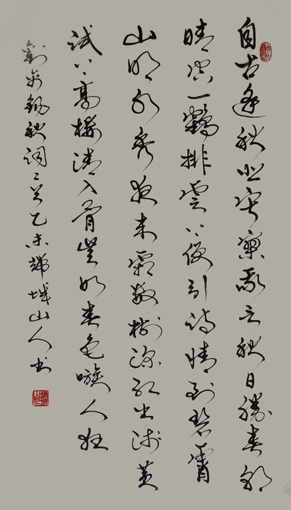 自古逢秋悲寂寥我言秋日勝春朝
晴空一鶴排雲上便引詩情到碧霄
山明水秀夜来霜数樹深紅出浅黄
試上高樓清入骨豈如春色嗾人狂
劉禹錫秋詞二首乙未 城山人书